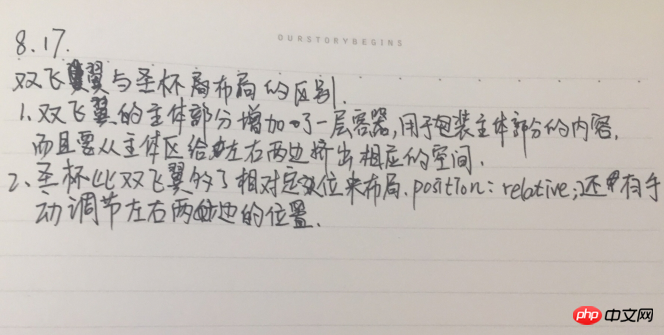 OURSTORYBEGINS
8.17.
双飞翼与圣杯局布局的区别.
1. 双飞翼的主体部分增加了一层容器,用于包装主体部分的内容,
而且要从主体区给左右两边挤出相应的空间.
2. 圣杯比双飞翼多了相对定位来布局. position: relative; 还有手
动调节左右两边的位置.
php 中文网